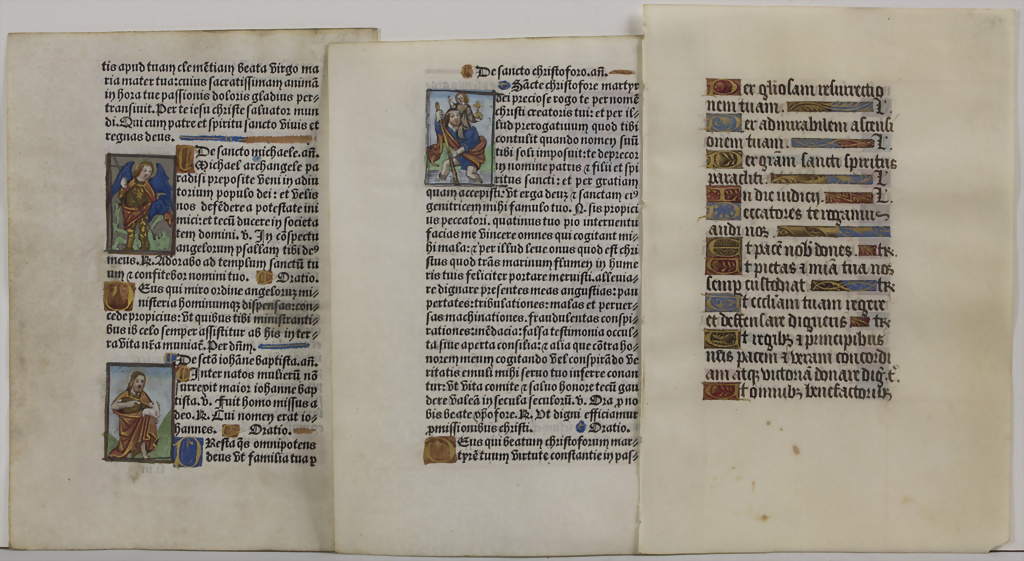 tis apud tuam clemẽtiam beata virgo ma
ria mater tua: cuius sacratissimam animã
in hora tue passionis doloris gladius per-
transiuit. Per te iesu christe saluator mun
di. Qui cum patre et spiritu sancto viuis et
regnas deus.
De sancto michaele. añ.
Michael archangele pa
radisi preposite veni in adiu
torium populo dei: et velis
nos defẽdere a potestate ini
mici: et tecũ ducere in societa
tem domini. v. In cõspectu
angelorum psallam tibi de⁹
meus. R. Adorabo ad templum sanctũ tu
um ⁊ confitebor nomini tuo. Oratio.
DEus qui miro ordine angeloruꝫ mi-
nisteria hominumqꝫ dispensas: con-
cede propicius: vt quibus tibi ministranti-
bus ib celo semper assistitur ab his in ter-
ra vita nr̃a muniat̃. Per dñm.
De sctõ iohãne baptista. añ.
Inter natos mulierũ nõ
surrexit maior iohanne bap
tista. v. Fuit homo missus a
deo. R. Cui nomen erat io-
hannes. Oratio.
PResta q̃s omnipotens
deus vt familia tua p
De sancto christoforo. añ.
SAncte christofore martyr
dei preciose rogo te per nomẽ
christi creatoris tui: et per il-
lud prerogatiuum quod tibi
contulit quando nomen suũ
tibi soli imposuit: te deprecor
in nomine patris ⁊ filii et spi
ritus sancti: et per gratiam
quam accepisti: vt erga deuꝫ ⁊ sanctam ei⁹
genitricem mihi famulo tuo. N. sis propici
us peccatori. quatinus tuo pio interuentu
facias me vincere omnes qui cogitant mi-
hi mala: ⁊ per illud leue onus quod est chri
stus quod trãs marinum flumen in hume
ris tuis feliciter portare meruisti. alleuia-
re dignare presentes meas angustias: pau
pertates: tribulationes: malas et peruer-
sas machinationes. fraudulentas conspi-
rationes: mẽdacia: falsa testimonia occul-
ta siue aperta consilia: ⁊ alia que cõtra ho-
norem meum cogitando vel conspirãdo ve
ritatis emuli mihi seruo tuo inferre conan
tur: vt vita comite ⁊ saluo honore tecũ gau
dere valeã in secula seculorũ. v. Ora p̃ no
bis beate xp̃ofore. R. Vt digni efficiamur
p̃missionibus christi. Oratio.
DEus qui beatum christoforum mar-
tyrẽ tuum virtute constantie in pas-
Per gl̃osam resurrectio
nem tuam. L.
Per admirabilem ascensi
onem tuam. L.
Per gr̃am sancti spiritus
paracliti. L.
In die iudicij.
Peccatores te rogamus
audi nos.
Et pacẽ nobis dones. te r.
Et pietas ⁊ mĩa tua nos
semp custodiat te r.
Et ecclesiam tuam regere
et deffensare digneris te r.
Et regibꝫ ⁊ principibus
nr̃is pacem ⁊ veram concordi
am atqꝫ victoriã donare dig. t.
Et omnibꝫ benefactoribꝫ